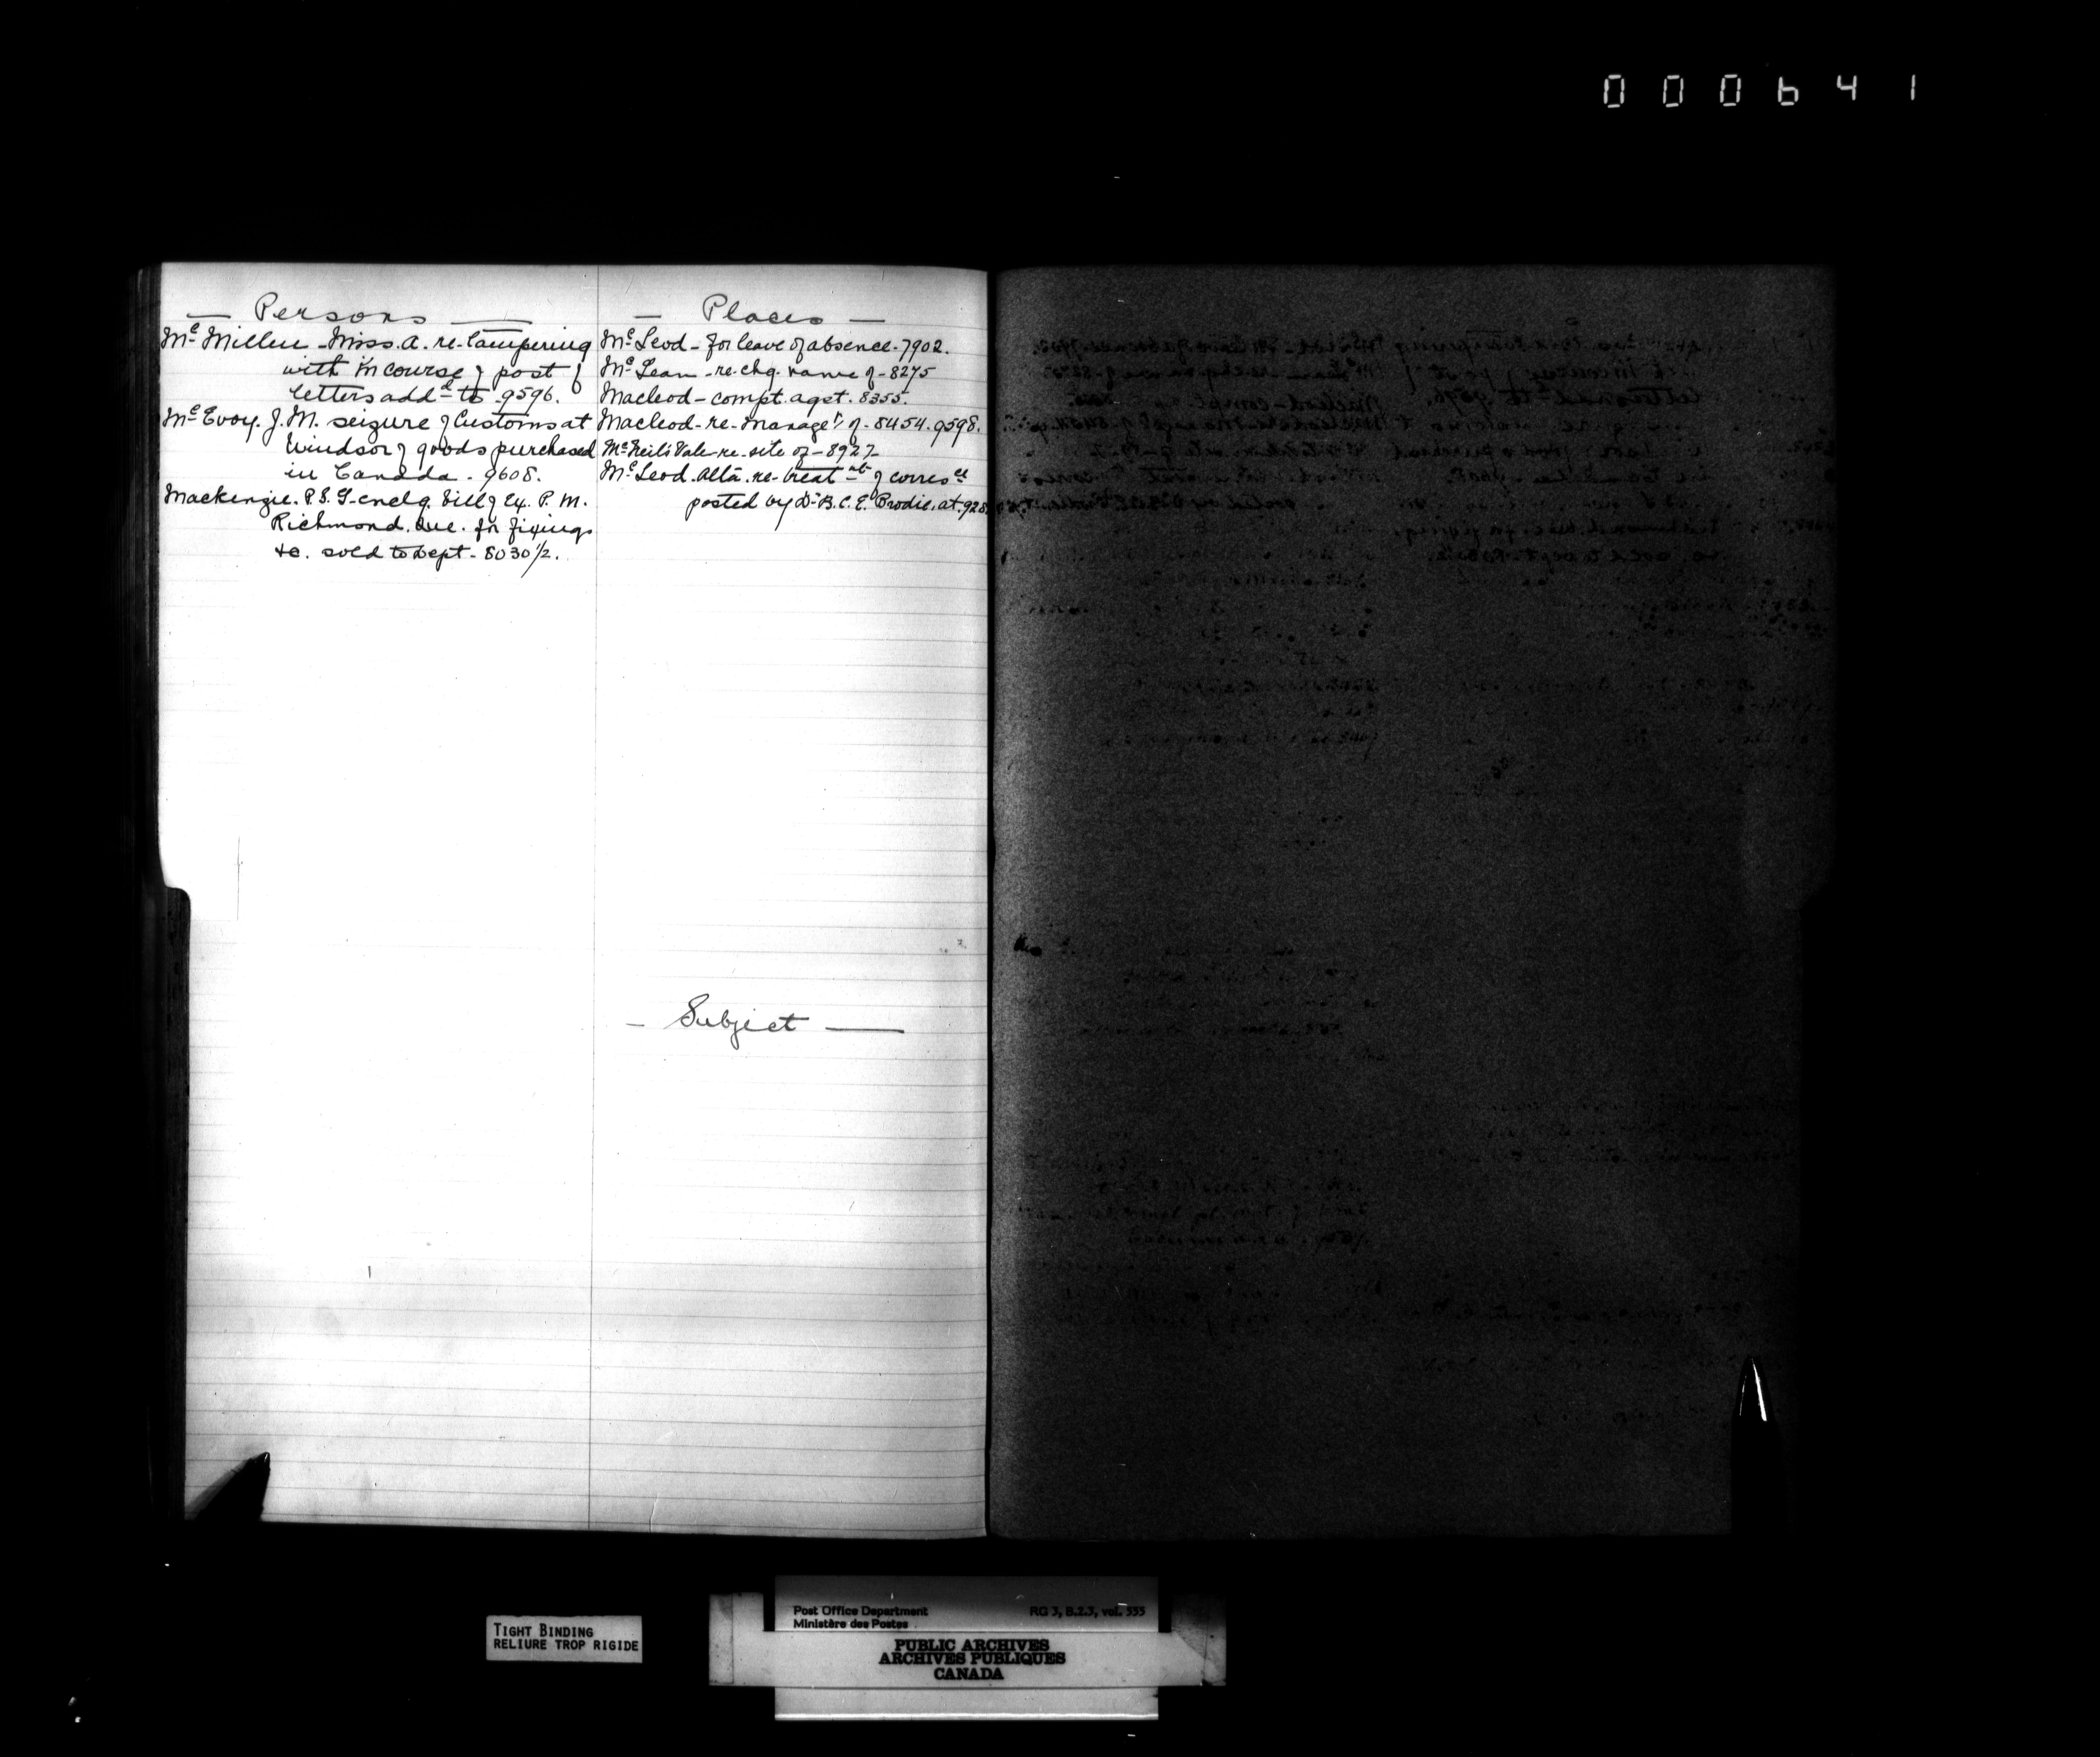 000641
— Persons —
Mc Millen - Miss. A. re. tampering
with in course of post of
letters addd to 9596.
Mc Evoy. J. M. seizure of Customs at
Windsor of goods purchased
in Canada - 9608.
Mackenzie. P. S. G - enclg. bill of Ex. P. M.
Richmond. Que. for fixings
&c. sold to Dept - 8030 1/2.
— Places —
Mc Leod - for leave of absence - 7902.
Mc Lean - re. chg. name of - 8275
Macleod - compt. agst. 8355.
Macleod - re - Managet of - 8454. 9598.
McNeil's Vale - re. site of - 8927
Mc Leod. Alta. re - treatmt of corresce
posted by Dr B. C. E. Brodie, at. 928
— Subject —
TIGHT BINDING
RELIURE TROP RIGIDE
Post Office Department RG 3, B.2.3, vol. 335
Ministère des Postes
PUBLIC ARCHIVES
ARCHIVES PUBLIQUES
CANADA